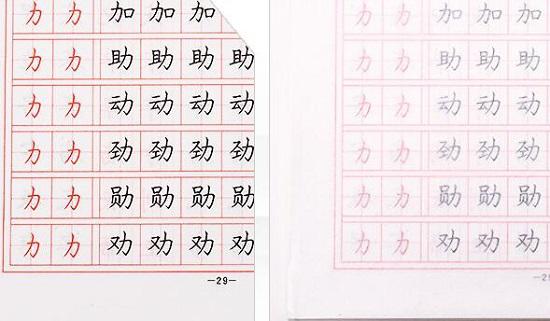 力 力 加 加 加
力 力 助 助 助 助
力 力 动 动 动 动
力 力 劲 劲 劲 劲
力 力 勋 勋 勋 勋
力 力 劝 劝 劝 劝
—29—
力 力 加 加 加
力 力 助 助 助
力 力 动 动 动
力 力 劲 劲 劲
力 力 勋 勋 勋
力 力 劝 劝 劝